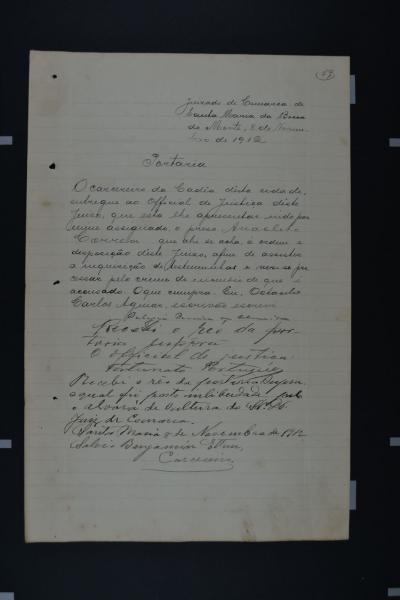 53
Juizado de Comarca de
Santa Maria da Bocca
do Monte, 8 de Novem
bro de 1912
Portaria
O carcereiro da Cadia desta cidade,
entregue ao Official de Justiça deste
Juizo, que esta lhe apresentar indo por
mim assignado, o preso Anacleto
Corrêa que ahi se acha, á ordem e
disposição deste Juizo, afim de assistir
a inquirição de testemunhas e
pelo crime de que é
accusado. O que cumpra. Eu, Octacilio
Carlos Aguiar, escrivão escrevi.
Recebi o réo da por
taria supra
O official de justiça
Fortunato
Recebi o réo da portaria supra
o qual foi posto em liberdade pelo
alvará de soltura do
Juiz de Comarca.
Santa Maria 8 de Novembro de 1912
Benjamin
Carcereiro